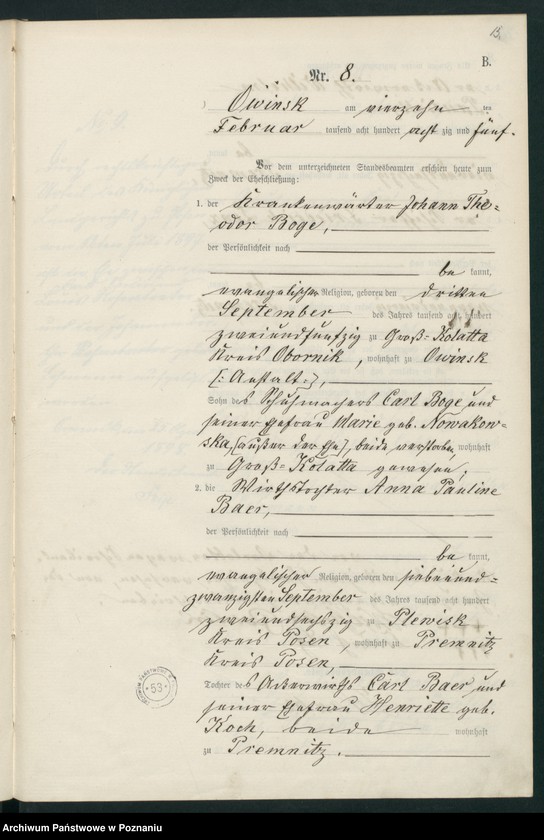 B.
Nr. 8.
Owinsk am vierzehn ten
Februar tausend acht hundert acht zig und fünf.
Vor dem unterzeichneten Standesbeamten erschien heute zum
Zweck der Eheschließung:
1. der Krankenwärter Johann The=
odor Boge,
der Persönlichkeit nach
be kannt,
evangelischer Religion, geboren den dritten
September des Jahres tausend acht hundert
zweiundfünfzig zu Groß=Kolatta
Kreis Obornik, wohnhaft zu Owinsk
[: Anstalt :],
Sohn des Schuhmachers Carl Boge und
seiner Ehefrau Marie geb. Nowakow=
ska, [außer der Ehe], beide verstorben, wohnhaft
zu Groß=Kolatta gewesen.
2. die Wirthstochter Anna Pauline
Baer,
der Persönlichkeit nach
be kannt,
evangelischer Religion, geboren den siebenund=
zwanzigsten September des Jahres tausend acht hundert
zweiundsechszig zu Plewisk
Kreis Posen, wohnhaft zu Premnitz
Kreis Posen,
Tochter des Ackerwirths Carl Baer und
seiner Ehefrau Henriette geb.
Koch, beide wohnhaft
zu Premnitz.
53
Archiwum Państwowe w Poznaniu